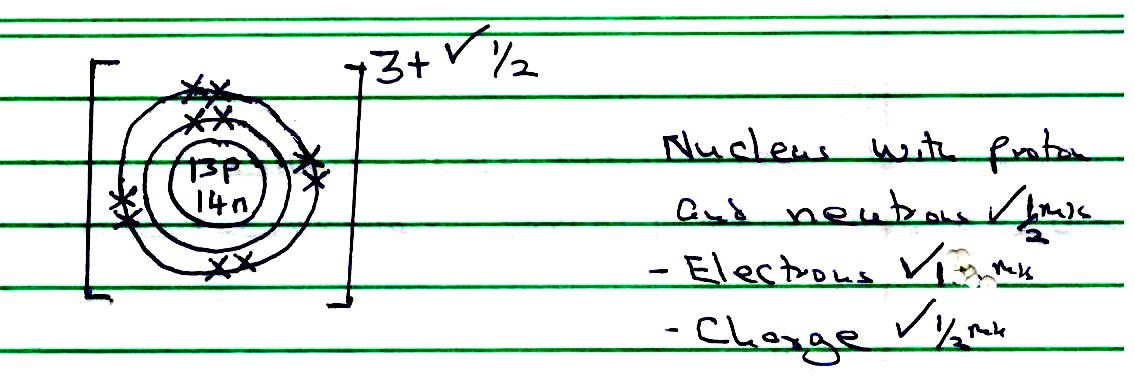 3+ ✓ 1/2
13p
14n
Nucleus with proton
and neutrons ✓ 1/2 mk
- Electrons ✓ 1 mk
- Charge ✓ 1/2 mk